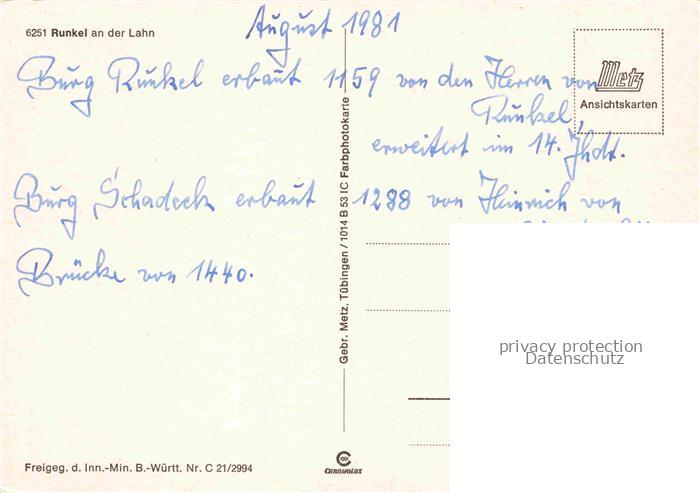 6251 Runkel an der Lahn
August 1981
Metz
Ansichtskarten
Burg Runkel erbaut 1159 von den Herren von
Runkel,
erweitert im 14. Jhdt.
Burg Schadeck erbaut 1288 von Heinrich von
Brücke von 1440.
Gebr. Metz, Tübingen / 1014 B 53 IC Farbphotokarte
privacy protection
Datenschutz
Freigeg. d. Inn.-Min. B.-Württ. Nr. C 21/2994
CHROMOLUX